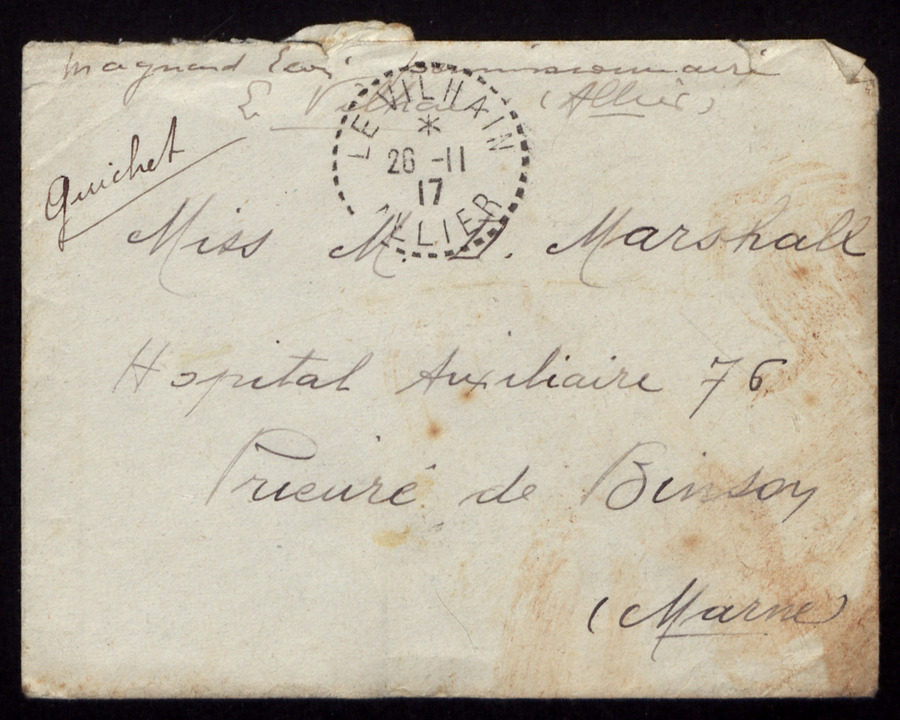 Magnard commissionnaire
Le Vilhain (Allier)
Guichet
LE VILHAIN
*
26 -11
17
ALLIER
Miss M. L. Marshall
Hopital Auxiliaire 76
Prieuré de Binson
(Marne)